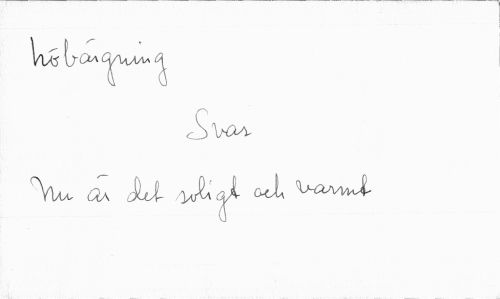 höbärgning
Svar
Nu är det soligt och varmt